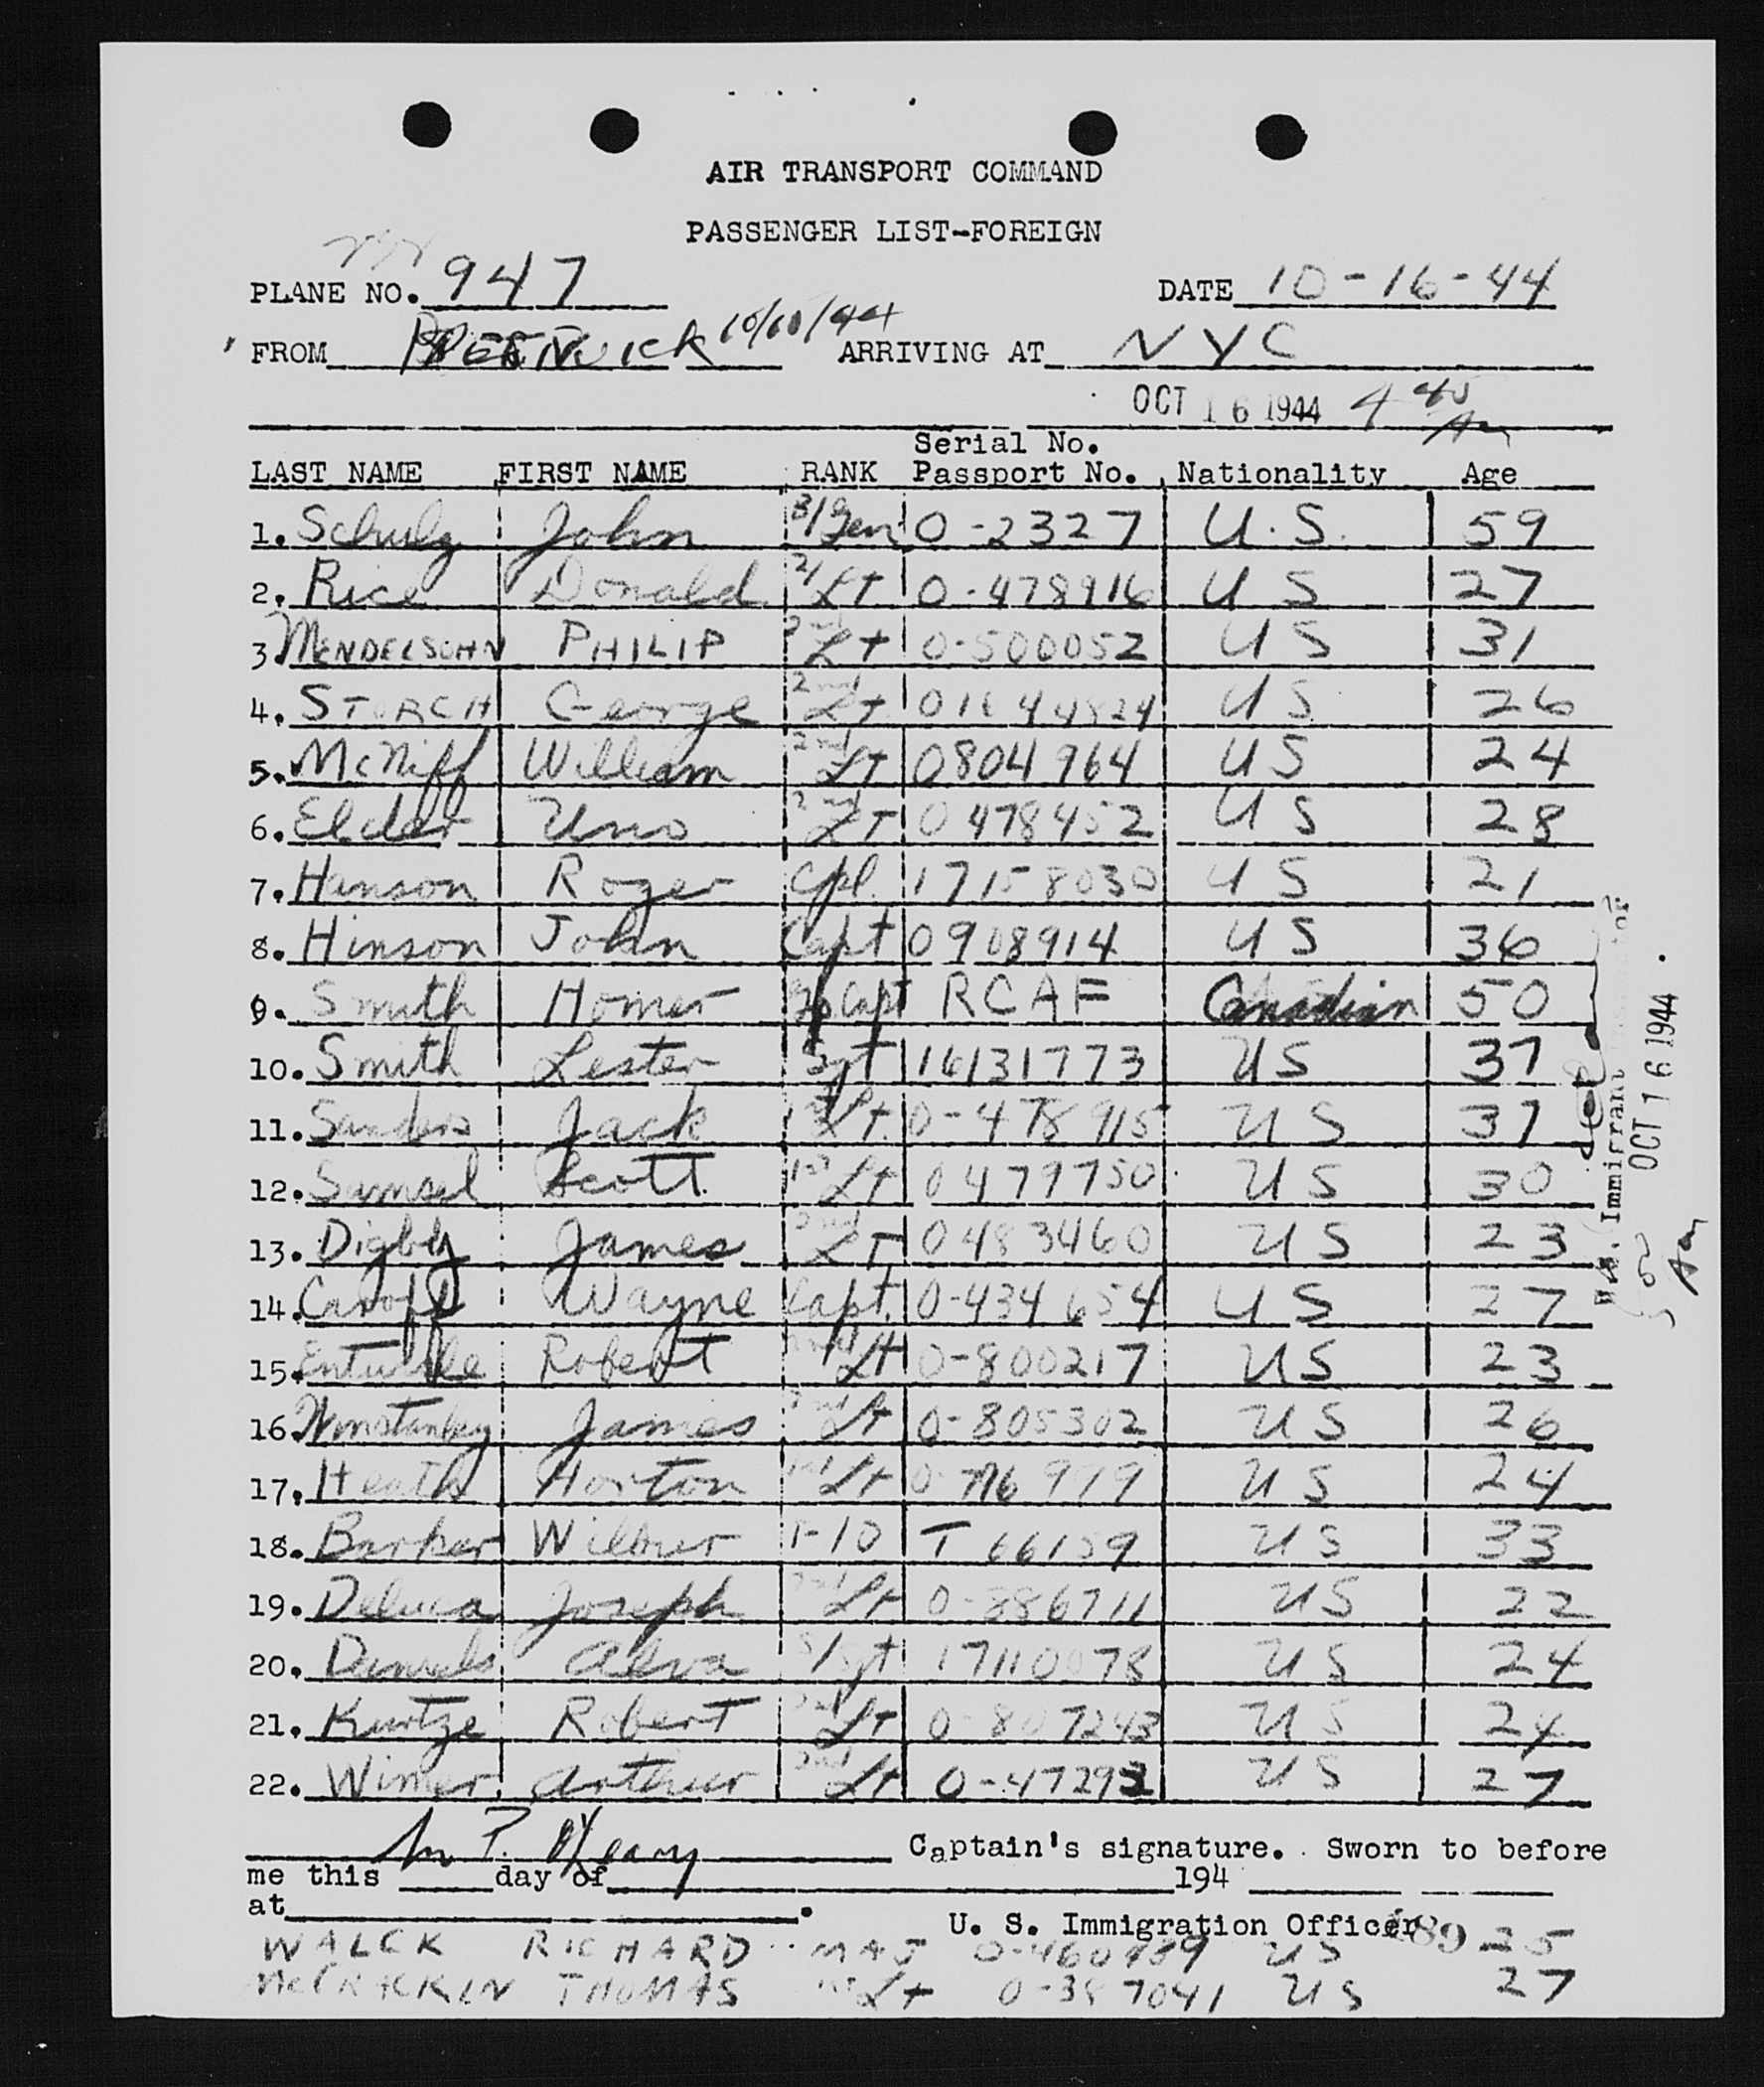 AIR TRANSPORT COMMAND
PASSENGER LIST-FOREIGN
PLANE NO. 947 DATE 10-16-44
FROM ARRIVING AT NYC
OCT 16 1944 4 45 Am
Serial No.
LAST NAME FIRST NAME RANK Passport No. Nationality Age
1. Schulz John B/Gen 0-2327 U.S. 59
2. Rice Donald 2/Lt 0-478916 US 27
3 MENDELSOHN PHILIP 2nd Lt 0-500052 US 31
4. STORCH George 2nd Lt 01644824 US 26
5. McNiff William 2nd Lt 0804964 US 24
6. Elder Uno 2nd Lt 0478452 US 28
7. Hanson Roger Cpl. 17158030 US 21
8. Hinson John Capt 0908914 US 36
9. Smith Homer Gp Capt RCAF Canadian 50
10. Smith Lester Sgt 16131773 US 37
11. Sanders Jack 1st Lt. 0-478915 US 37
12. Samsel Scott 1st Lt 0479750 US 30
13. Digby James 2nd Lt 0483460 US 23
14. Canoff Wayne Capt. 0-434654 US 27
15. Entwistle Robert Lt 0-800217 US 23
16. Winstanley James 2nd Lt 0-805302 US 26
17. Heath Horton 1st Lt US 24
18. Barker Wilbur T 66159 US 33
19. Deluca Joseph 2nd Lt 0-886711 US 22
20. Daniels Alva S/Sgt 17110078 US 24
21. Kurtze Robert 2nd Lt 0-807243 US 24
22. Winer Arthur 2nd Lt US 27
Captain's signature. Sworn to before
me this day of 194
at .
U. S. Immigration Officer
WALCK RICHARD MAJ US 25
McCRACKIN THOMAS 1st Lt 0-387041 US 27
U.S. Immigrant Inspector
OCT 16 1944
Am